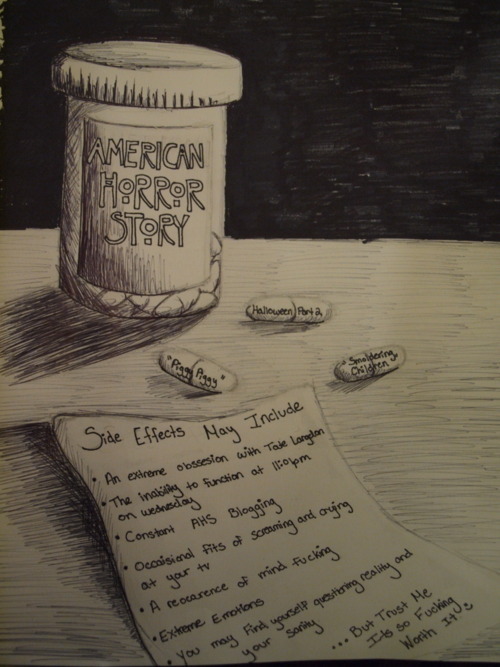 AMERICAN
HORROR
STORY
Halloween Part 2
"Piggy Piggy"
"Smoldering
Children"
Side Effects May Include
• An extreme obssesion with Tate Langdon
• The inability to function at 11:01pm
on wednesday
• Constant AHS Blogging
• Occaisional fits of screaming and crying
at your tv
• A reocarence of mind fucking
• Extreme Emotions
• You may find yourself questioning reality and
your sanity
... But Trust Me
Its so Fucking
Worth It